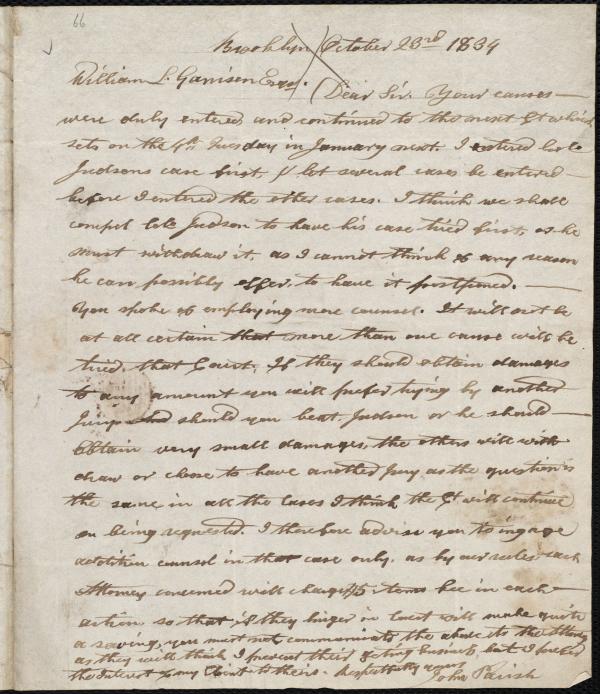 66
Brooklyn October 23rd 1834
William L. Garrison Esqr. Dear Sir. Your causes
were duly entered and continued to the next Ct which
sets on the 4th Tuesday in January next. I entered
Judsons case first, & let several cases be entered
before I entered the other cases. I think we shall
compel Judson to have his case tried first, or he
must withdraw it, as I cannot think of any reason
he can possibly offer, to have it postponed.
You spoke of employing more counsel. It will not be
at all certain that more than one cause will be
tried, that Court. If they should obtain damages
to any amount you will prefer trying by another
Jury and should you beat Judson or he should
obtain very small damages, the others will with
draw or choose to have another Jury as the question is
the same in all the cases I think the Ct will continue
on being requested. I therefore advise you to ingage
addition counsel in that case only. as by our rules each
Attorney concerned will charge fee in each
action so that if they linger in court will make quite
a saving, you must not communicate the above to the
as they will think I prevent their getting business but I prefer
the Interest of my Client to theirs. Respectfully yours
John Parish